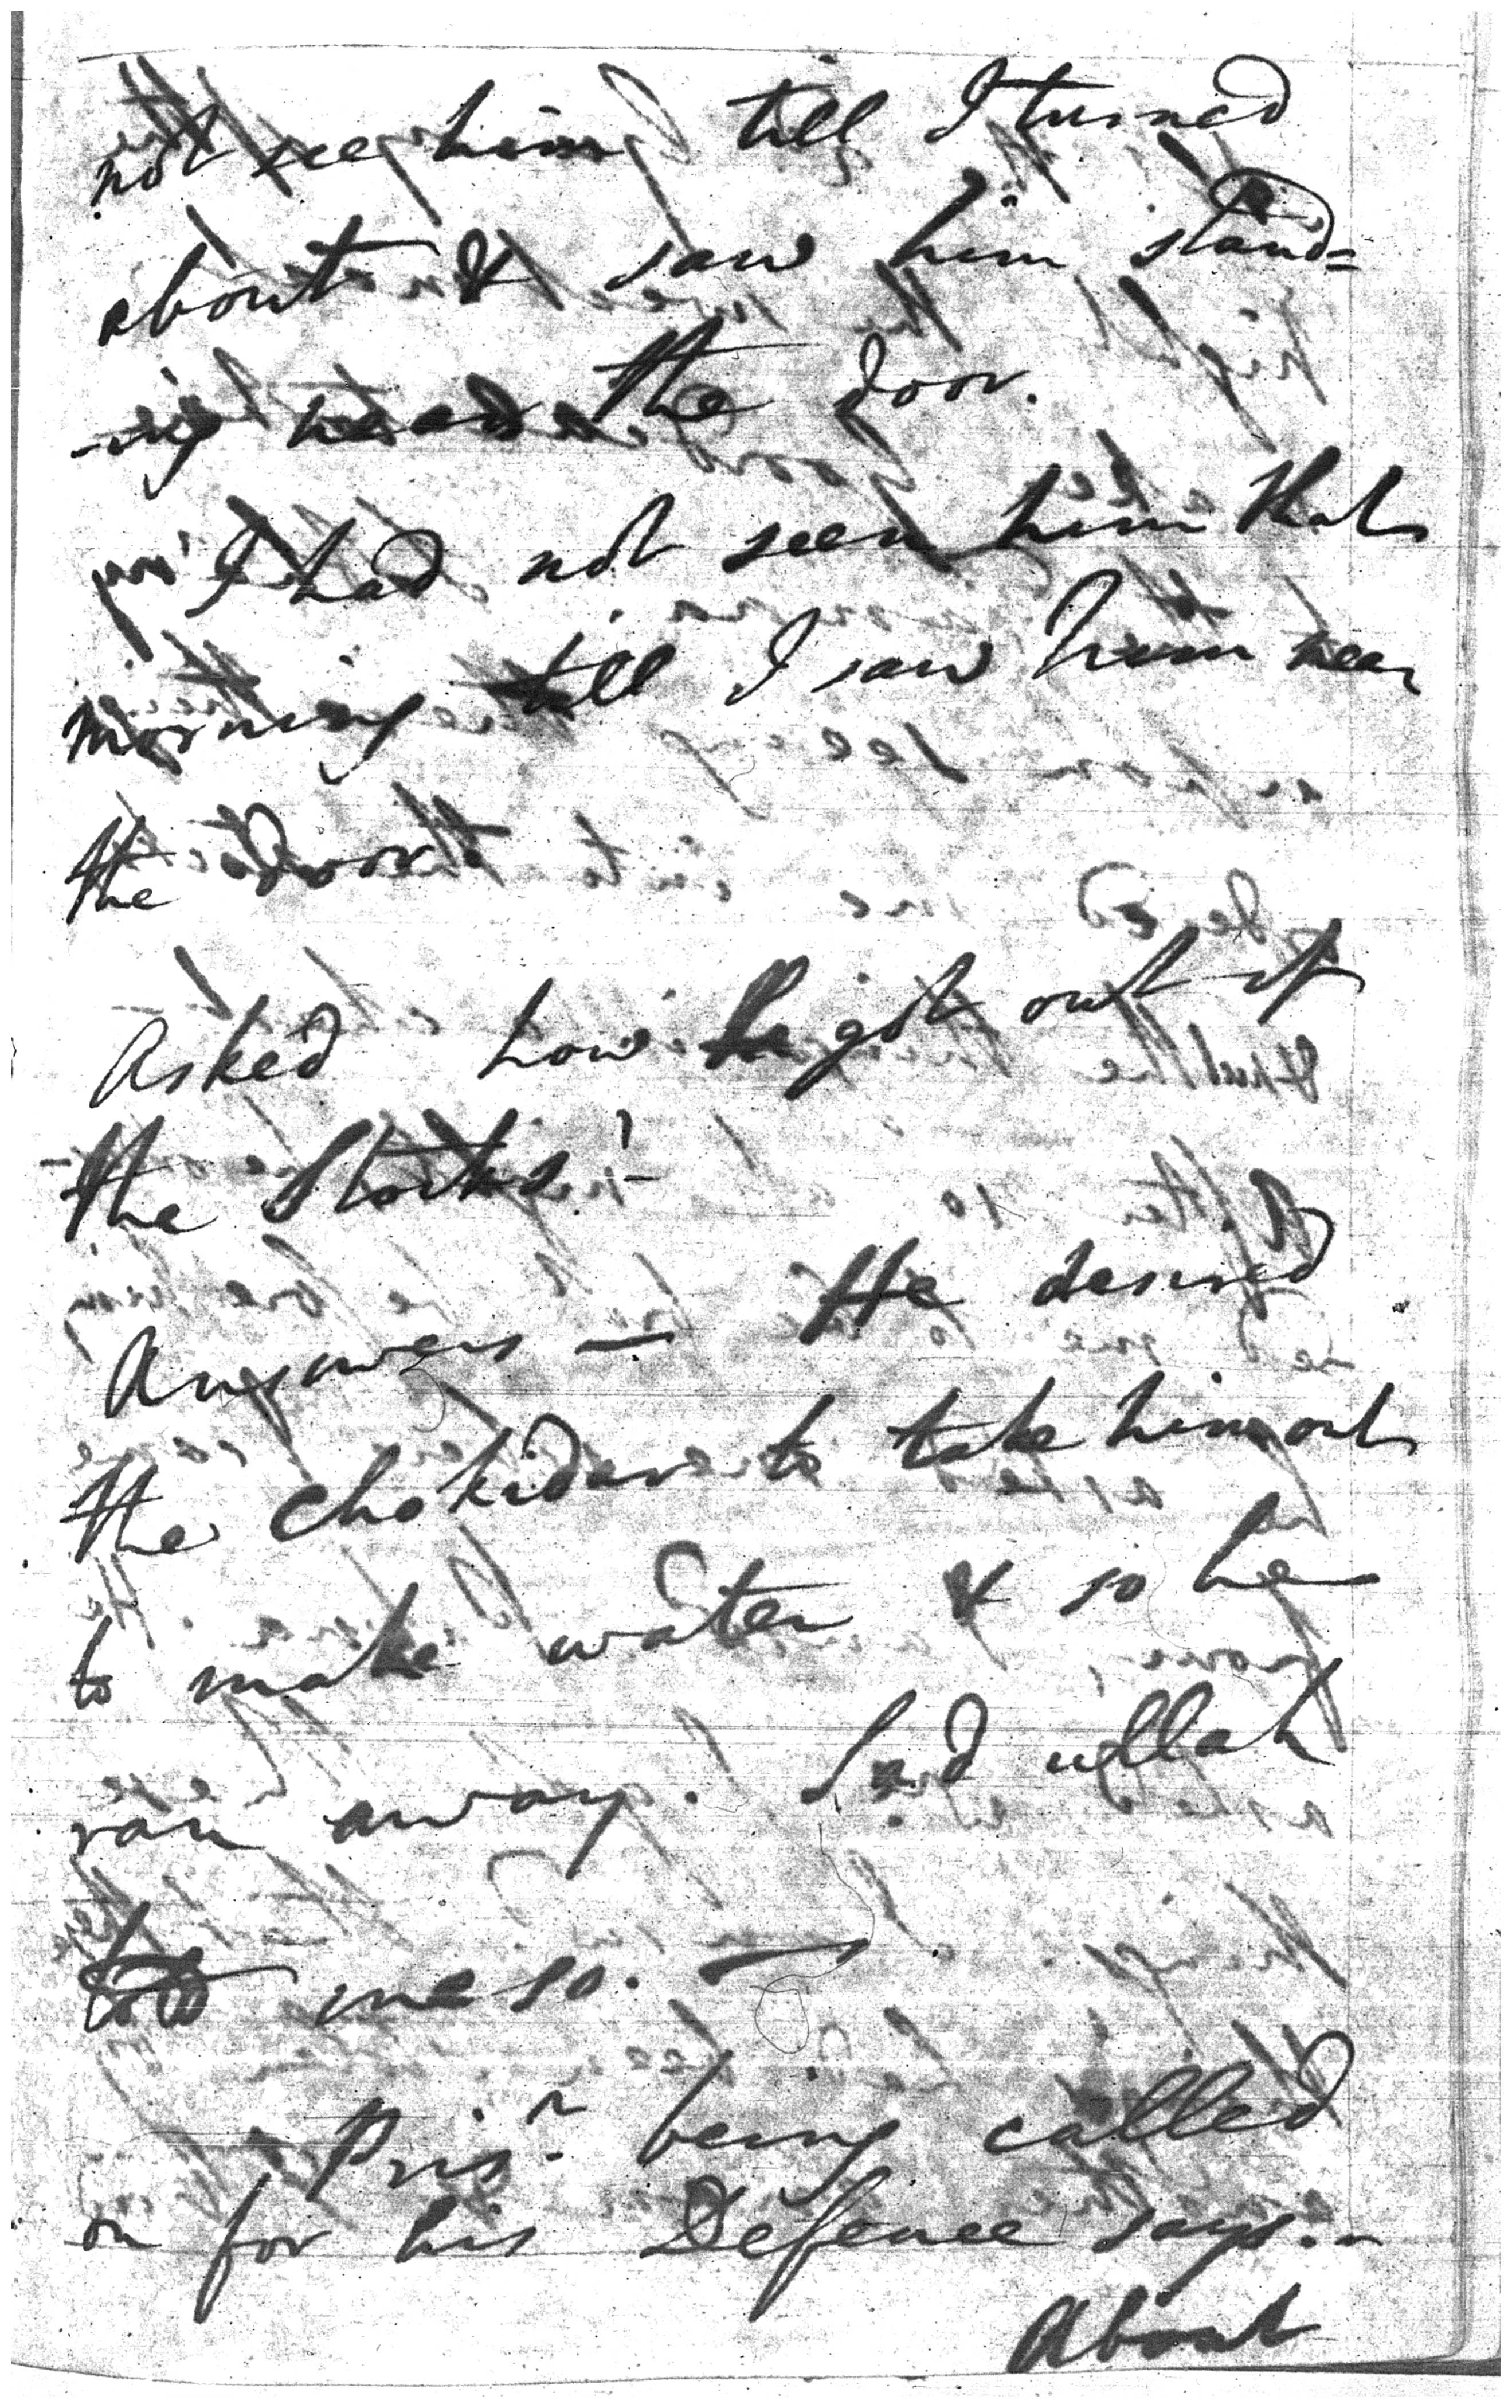 not see him till I turned
about & saw him stand=
-ing near the door.
I had not seen him that
morning till I saw him near
the door.
Asked how he got out of
the Stocks?-
Answers — He desired
the Chokidar to take him out
to make water & so he
ran away. Sad ullah
told me so. —
Pris.r being called
on for his Defence says.-
About